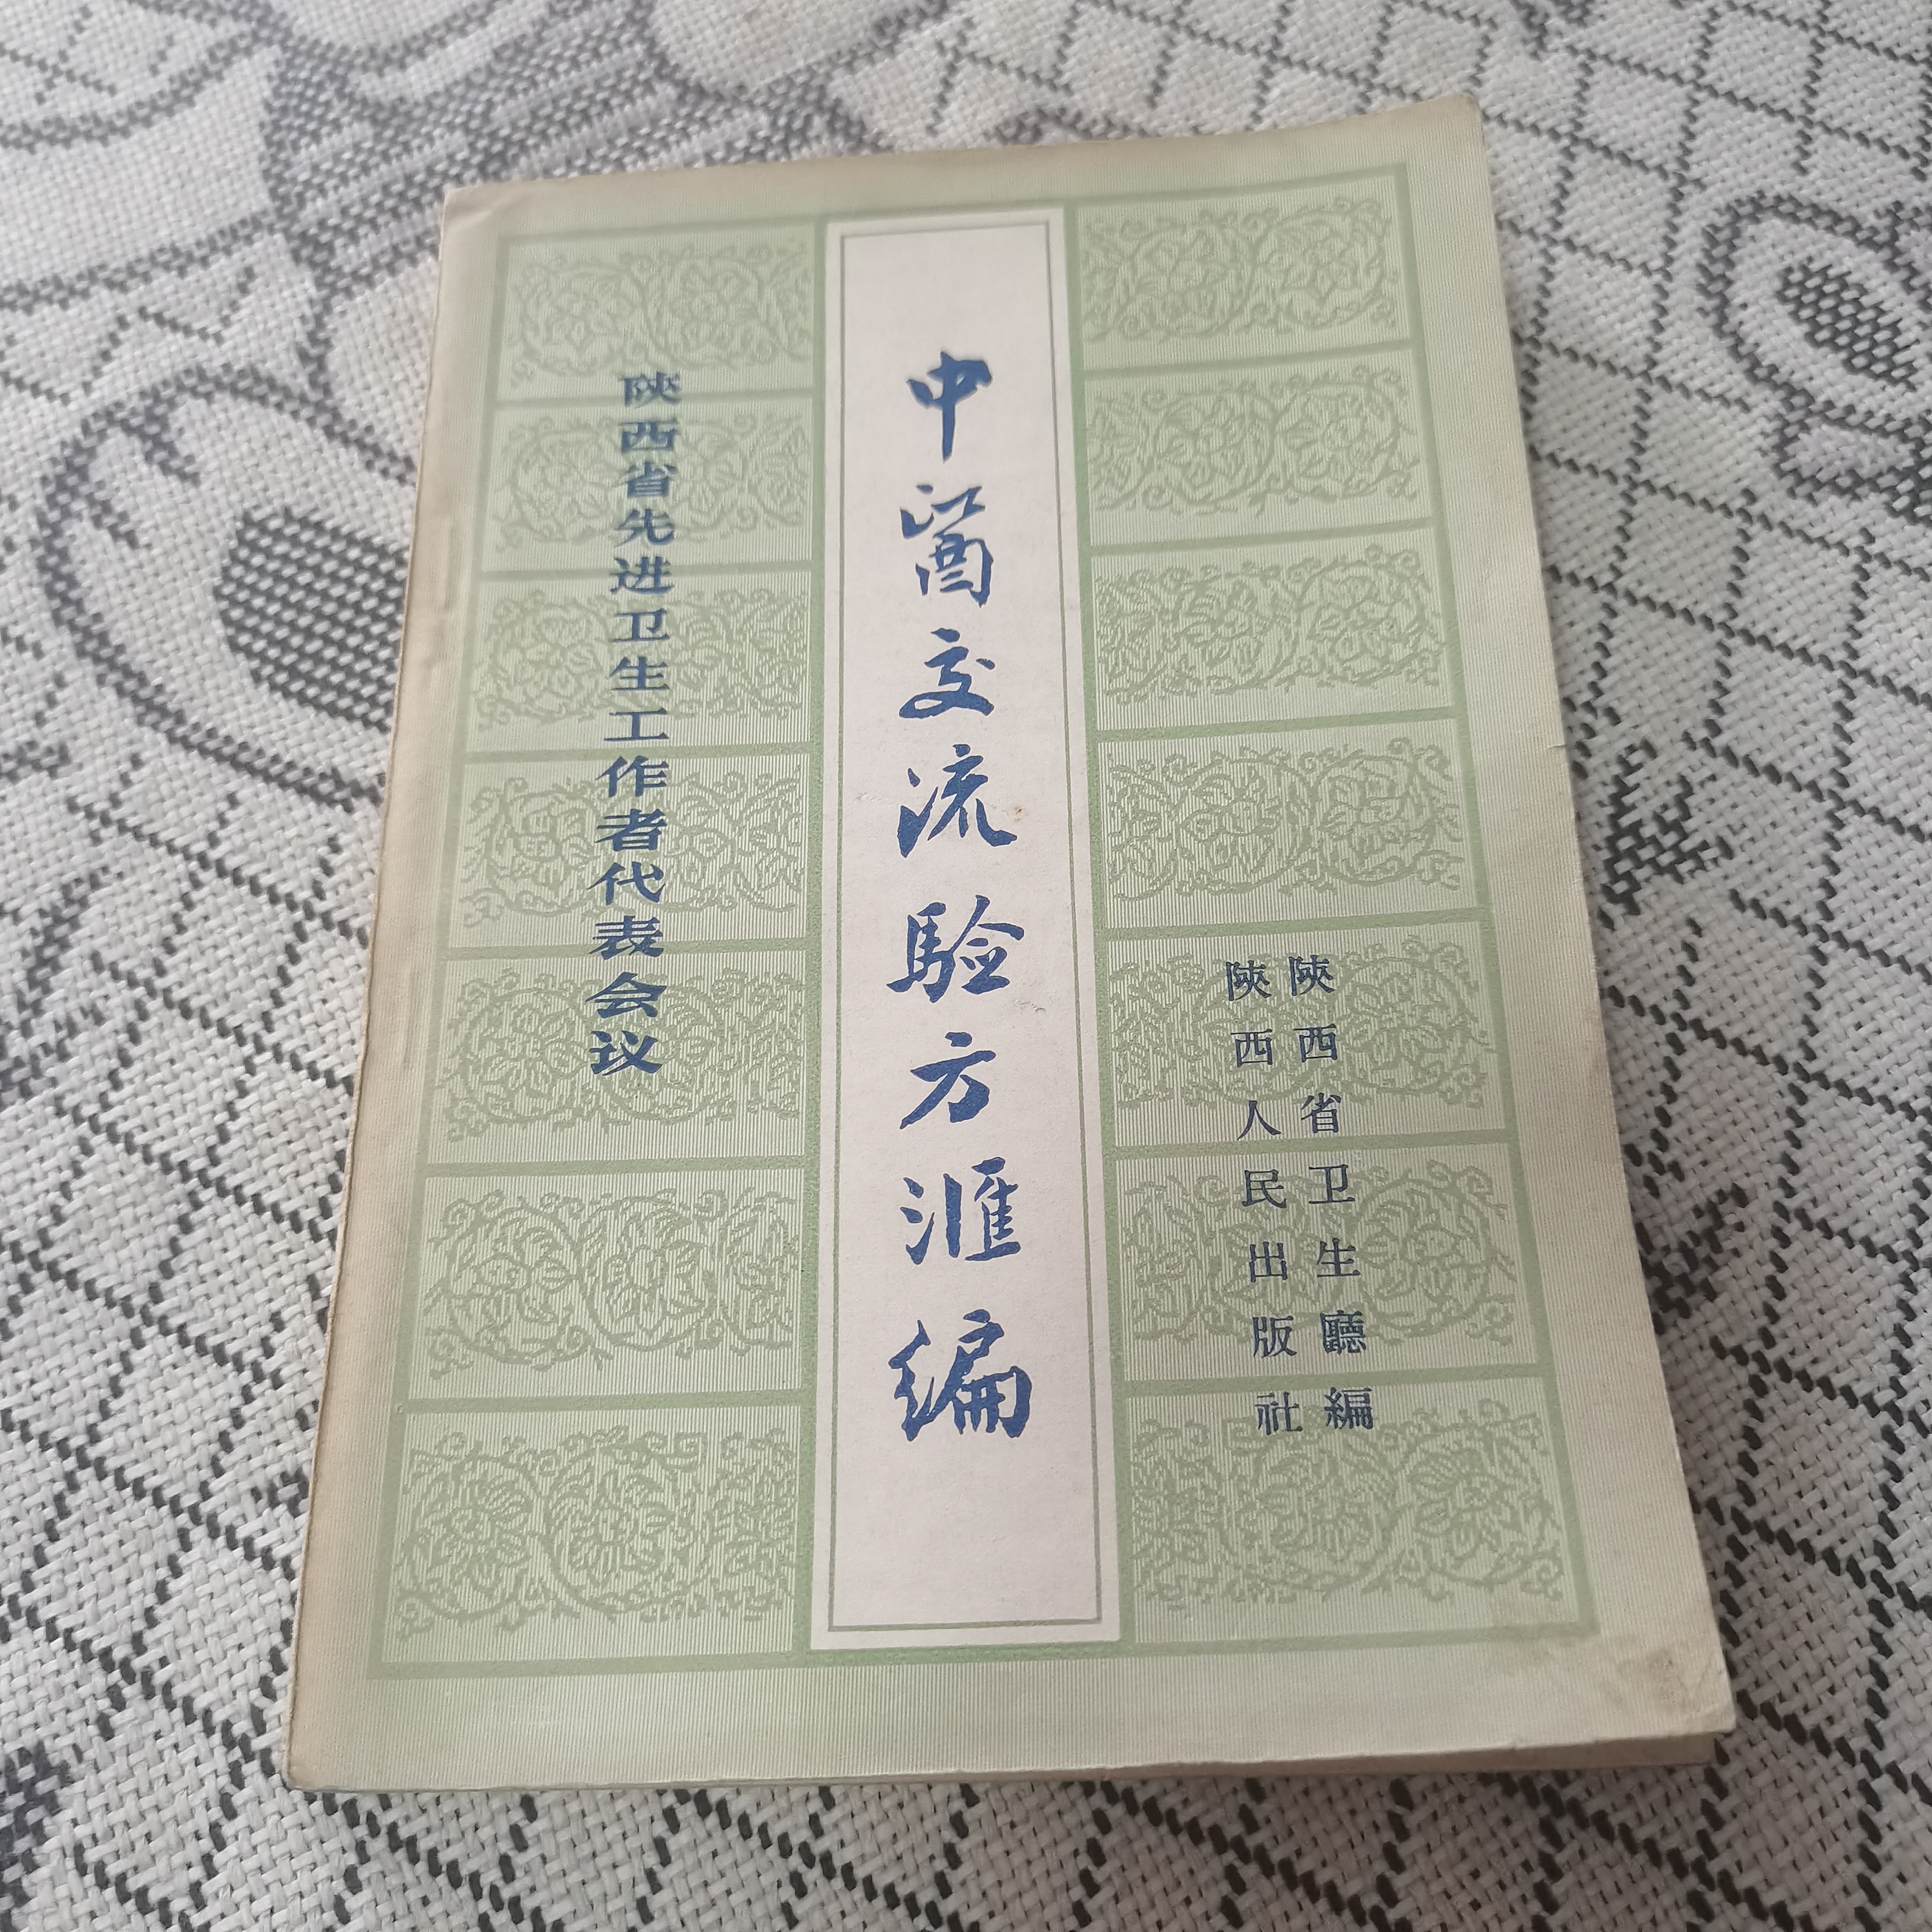 陝西省先进卫生工作者代表会议
中醫交流驗方滙编
陝西省卫生廳編
陝西人民出版社